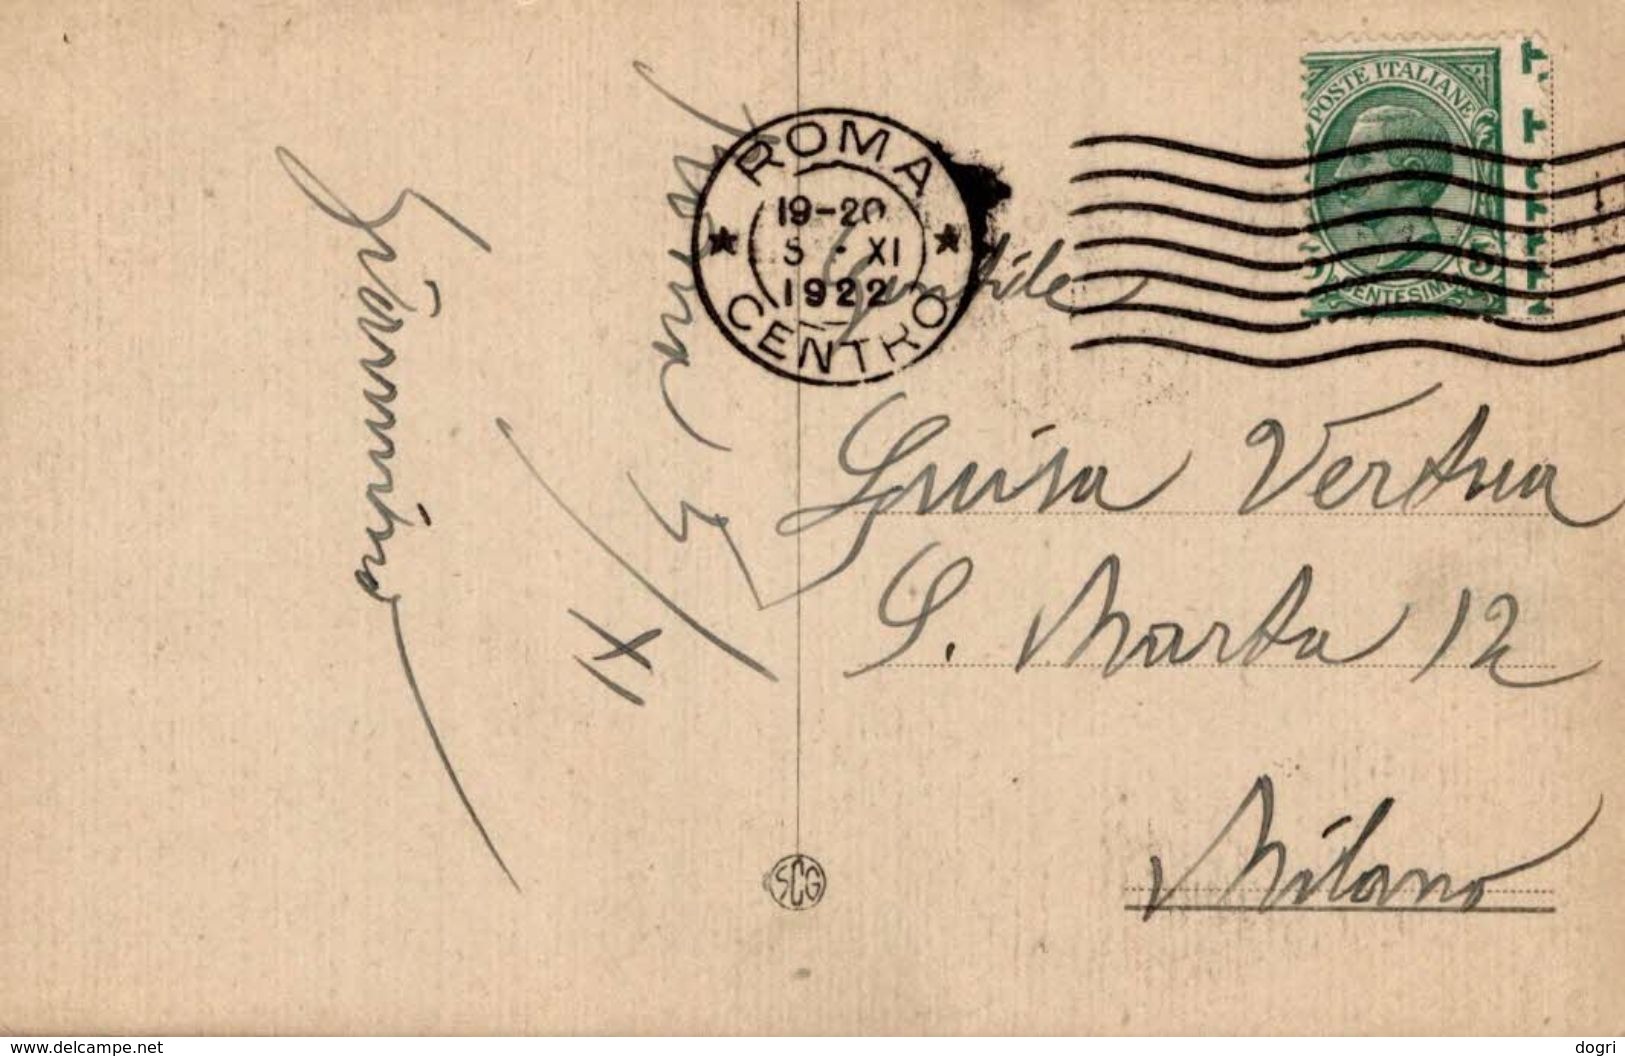 POSTE ITALIANE
5 CENTESIMI 5
ROMA
19-20
XI
1922
CENTRO
Gentile
Luisa Vertua
S. Marta 12
Milano
Roma 3
XI
SCG
www.delcampe.net
dogri